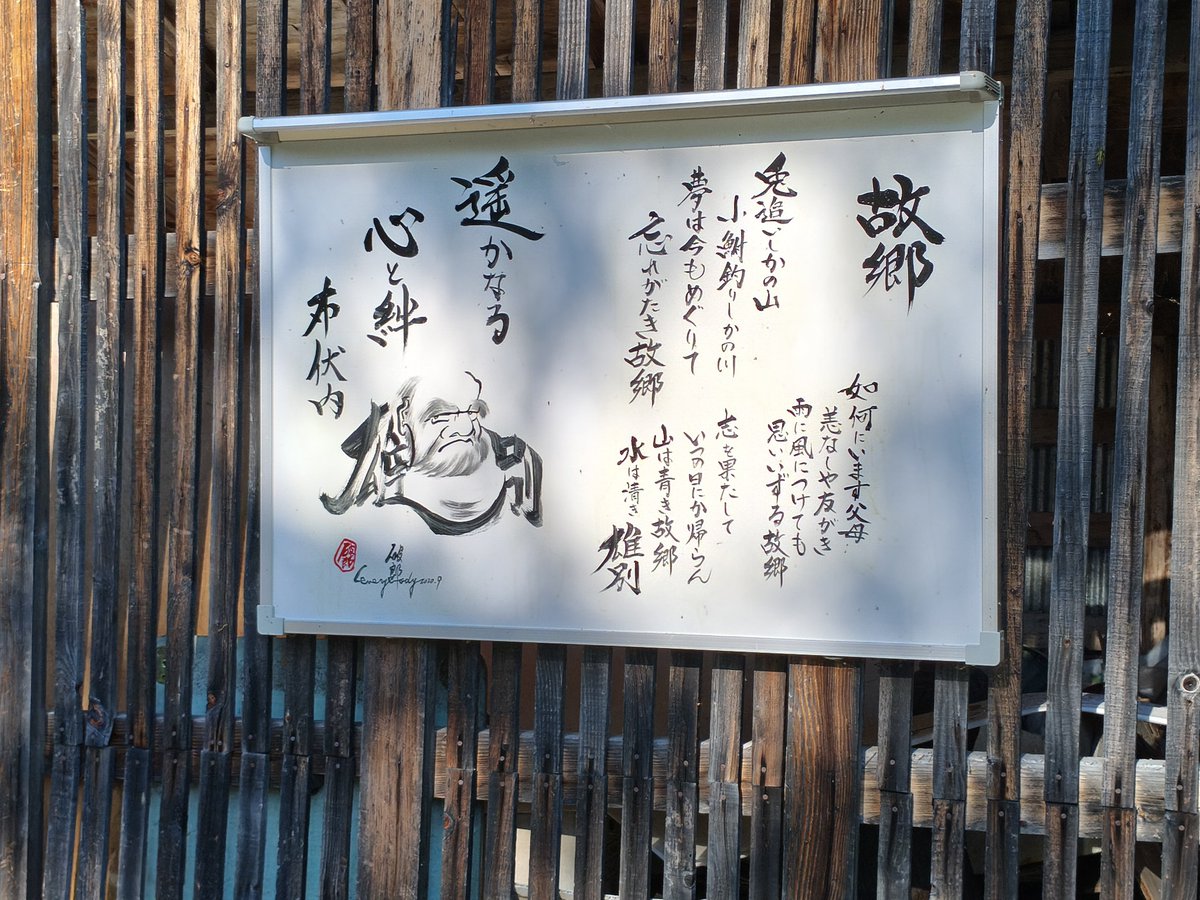 故郷
兎追いしかの山
小鮒釣りしかの川
夢は今もめぐりて
忘れがたき故郷
如何にいます父母
恙なしや友がき
雨に風につけても
思いいずる故郷
志を果たして
いつの日にか帰らん
山は青き故郷
水は清き 雄別
遥かなる
心と絆
布伏内
雄別
破郎
everybody 2020.9